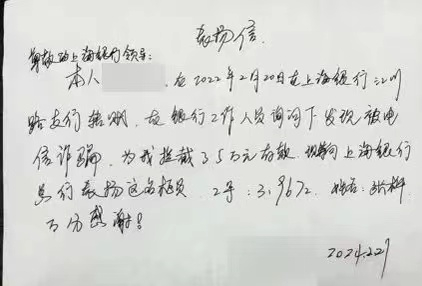 表扬信
尊敬的上海银行领导:
本人 在2022年2月20日在上海银行江川
路支行转账,在银行工作人员询问下发现被电
信诈骗,为我拦截了5万元存款,现特向上海银行
总行表扬这名柜员,工号:3.9672 姓名:
万分感谢!
2024.2.27